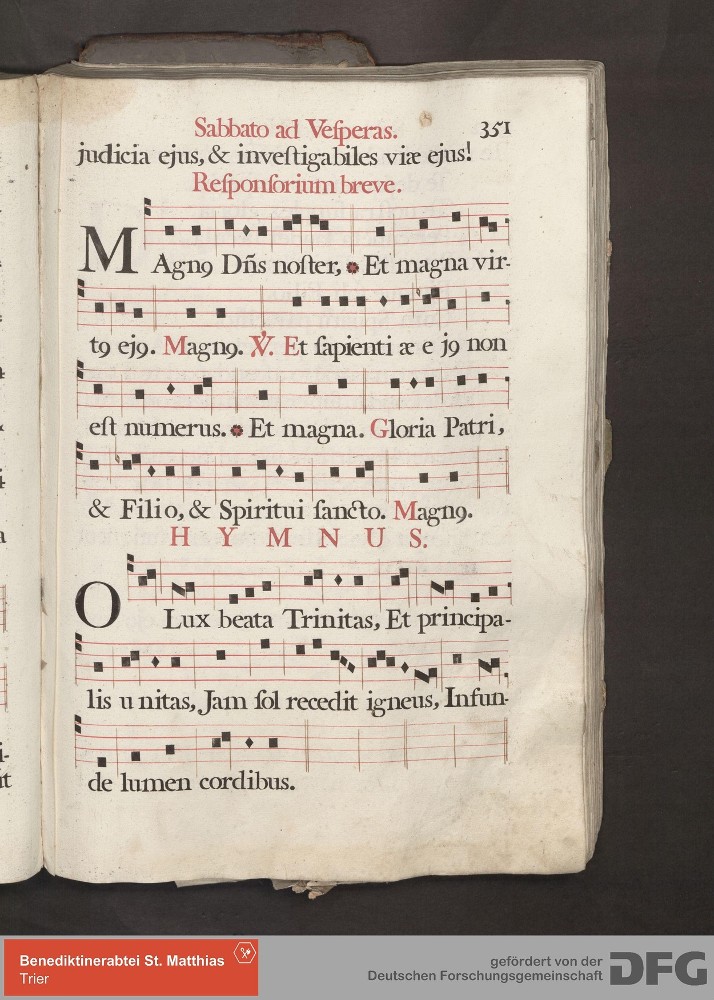 Sabbato ad Veſperas. 351
judicia ejus, & inveſtigabiles viæ ejus!
Reſponſorium breve.
MAgnꝯ Dñs noſter, Et magna vir-
tꝯ ejꝯ. Magnꝯ. ℣. Et ſapienti æ e jꝯ non
eſt numerus. Et magna. Gloria Patri,
& Filio, & Spiritui ſancto. Magnꝯ.
HYMNUS.
O Lux beata Trinitas, Et principa-
lis unitas, Jam ſol recedit igneus, Infun-
de lumen cordibus.
Benediktinerabtei St. Matthias
Trier
gefördert von der
Deutschen Forschungsgemeinschaft
DFG